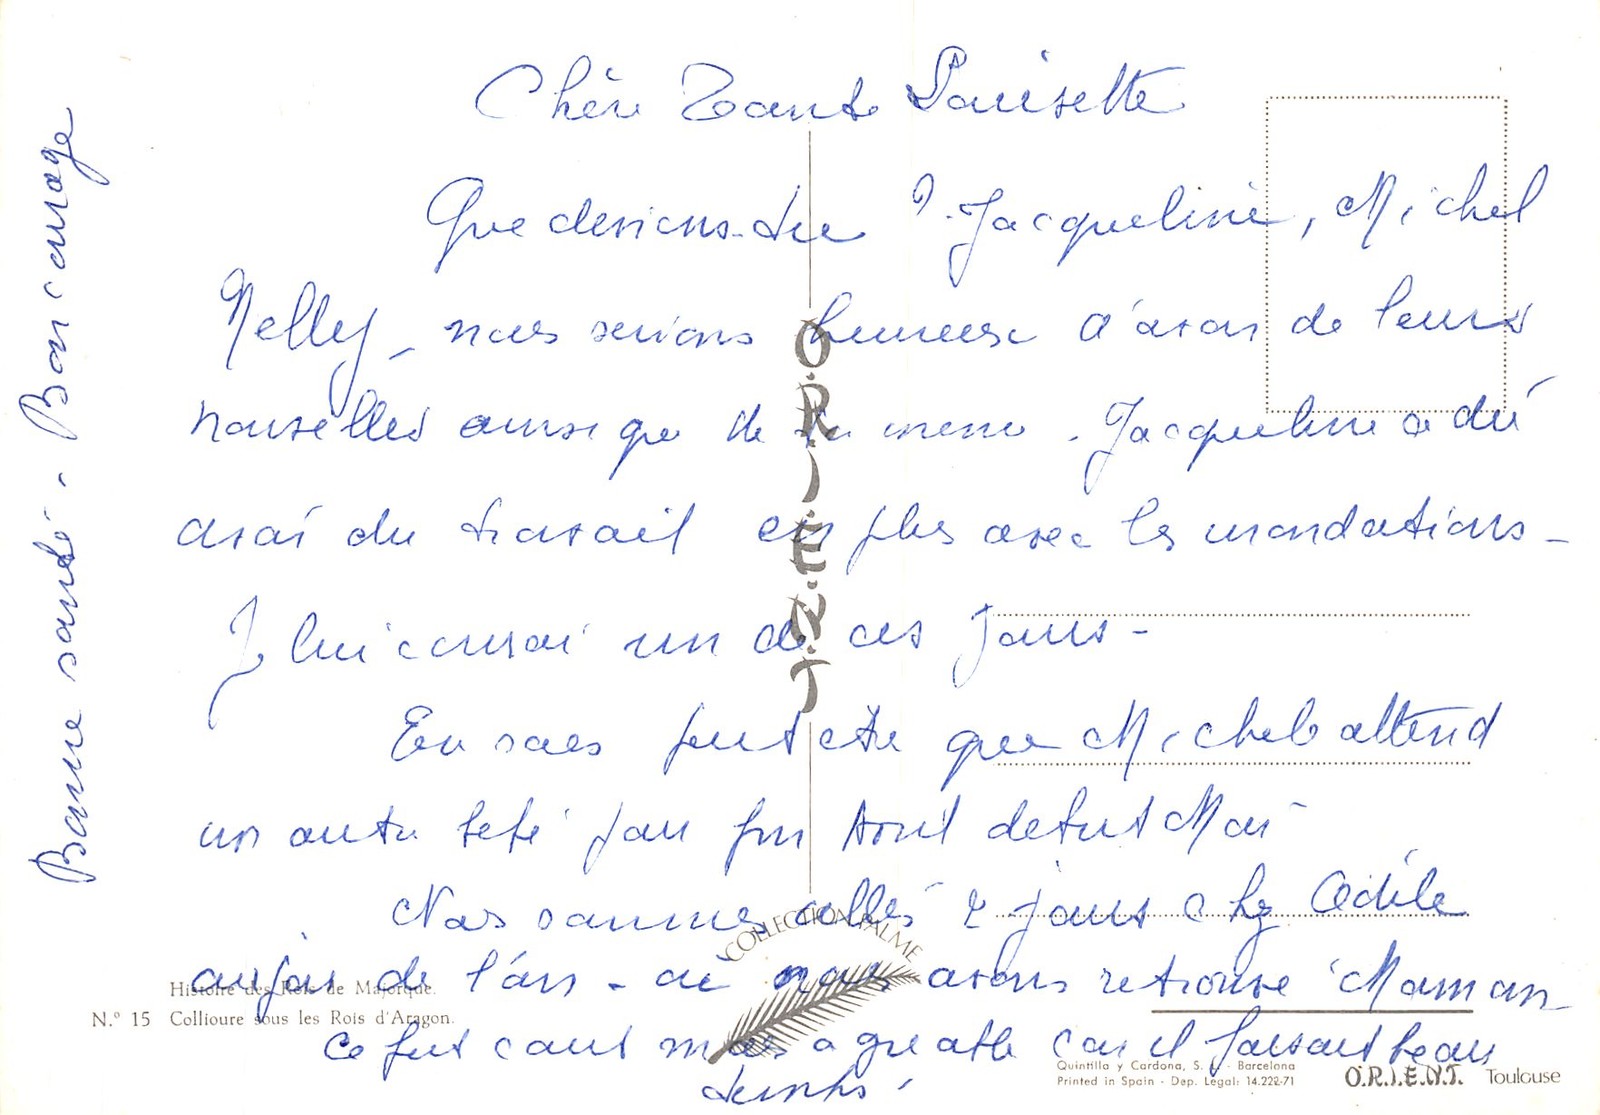 Chère Tante Louisette
Que deviens-tu ? Jacqueline, Michel
Nelly, nous serions heureux d'avoir de leurs
nouvelles ainsi que de toi même. Jacqueline a dû
avoir du travail en plus avec les inondations -
J lui écrirai un de ces jours -
Tu sais peut être que Michel attend
un autre bébé pour fin Avril début Mai
Nous sommes allés 2 jours chez Odile
au jour de l'an - où nous avons retrouvé Maman
Ce fut court mais agréable car il faisait beau
temps.
Bonne santé. Bon courage
O.R.I.E.N.T
COLLECTION PALME
Histoire des Rois de Majorque.
N.º 15 Collioure sous les Rois d'Aragon.
Quintilla y Cardona, S. L. - Barcelona
Printed in Spain - Dep. Legal: 14.222-71
O.R.I.E.N.T. Toulouse